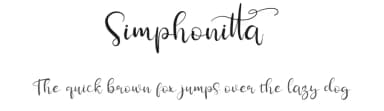 Simphonitta
The quick brown fox jumps over the lazy dog